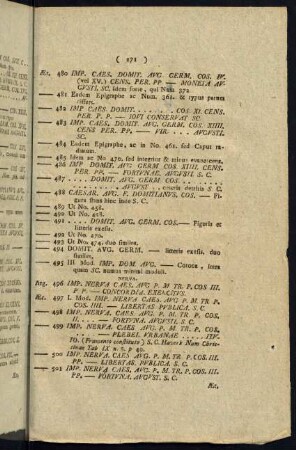 ( 171 )
Æt. 480 IMP. CAES. DOMIT. AVG. GERM. COS. IV.
(vel XV.) CENS. PER. PP — MONETA AV
GVSTI. SC. idem forte, qui Num 372.
— 481 Eadem Epigraphe ac Num. 362. & typus parum
differt.
— 482 IMP CAES. DOMIT. . . . . . . . . COS XI. CENS.
PER. P. P. — IOVI CONSERVAT SC.
— 483 IMP. CAES. DOMIT. AVG. GERM. COS. XIIII.
CENS PER. PP. — VIR. . . . . AVGVSTI.
SC.
— 484 Eadem Epigraphe, ac in No. 461. sed Caput ra-
diatum.
— 485 Idem ac No. 470. sed integrior & minus
— 486 IMP DOMIT. AVG. GERM. COS XIIII. CENS.
PER. PP. — FORTVNAE. AVGVSTI. S C.
— 487 . . . DOMIT. AVG. GERM. COS . . . . .
. . . . . AVGVSTI
— 488 CAESAR. AVG. F. DOMITIANVS. COS. —
Figura stans hinc inde S. C.
— 489 Ut No. 458.
— 490 Ut No. 428.
— 491 . . . . DOMIT. AVG. GERM. COS. — Figuris et
litteris exesis.
— 492 Ut No. 470.
— 493 Ut No. 474. duo similes.
— 494 DOMIT. AVG. GERM. — litteris exesis. duo
similes.
— 495 III Mod. IMP. DOM. AVG — Corona, intra
quam SC numus minimi moduli.
NERVA.
Arg. 496 IMP NERVA CAES. AVG. P M. TR P. COS. III.
P P. — CONCORDIA EXERCITVS.
Æt. 497 I. Mod. IMP. NERVA CAES. AVG. P M TR P.
COS. IIII. — LIBERTAS. PVBLICA. S. C.
— 498 IMP. NERVA CAES. AVG. P. M. TR. P. COS,
II. . . . — FORTVNA AVGVST. S C.
— 499 IMP. NERVA CAES. AVG. P. M. TR. P. COS,
. . . . PLEBEI. VRBANAE . . . .
TO. (Frumento constituto) S C.
— 500 IMP. NERVA CAES AVG. P. M. TR P. COS. III.
PP. — LIBERTAS. PVBLICA. S. C.
— 501 IMP. NERVA CAES. AVG. P. M TR P. COS. III.
PP. — FORTVNA. AVGVST. S. C.
Æt.